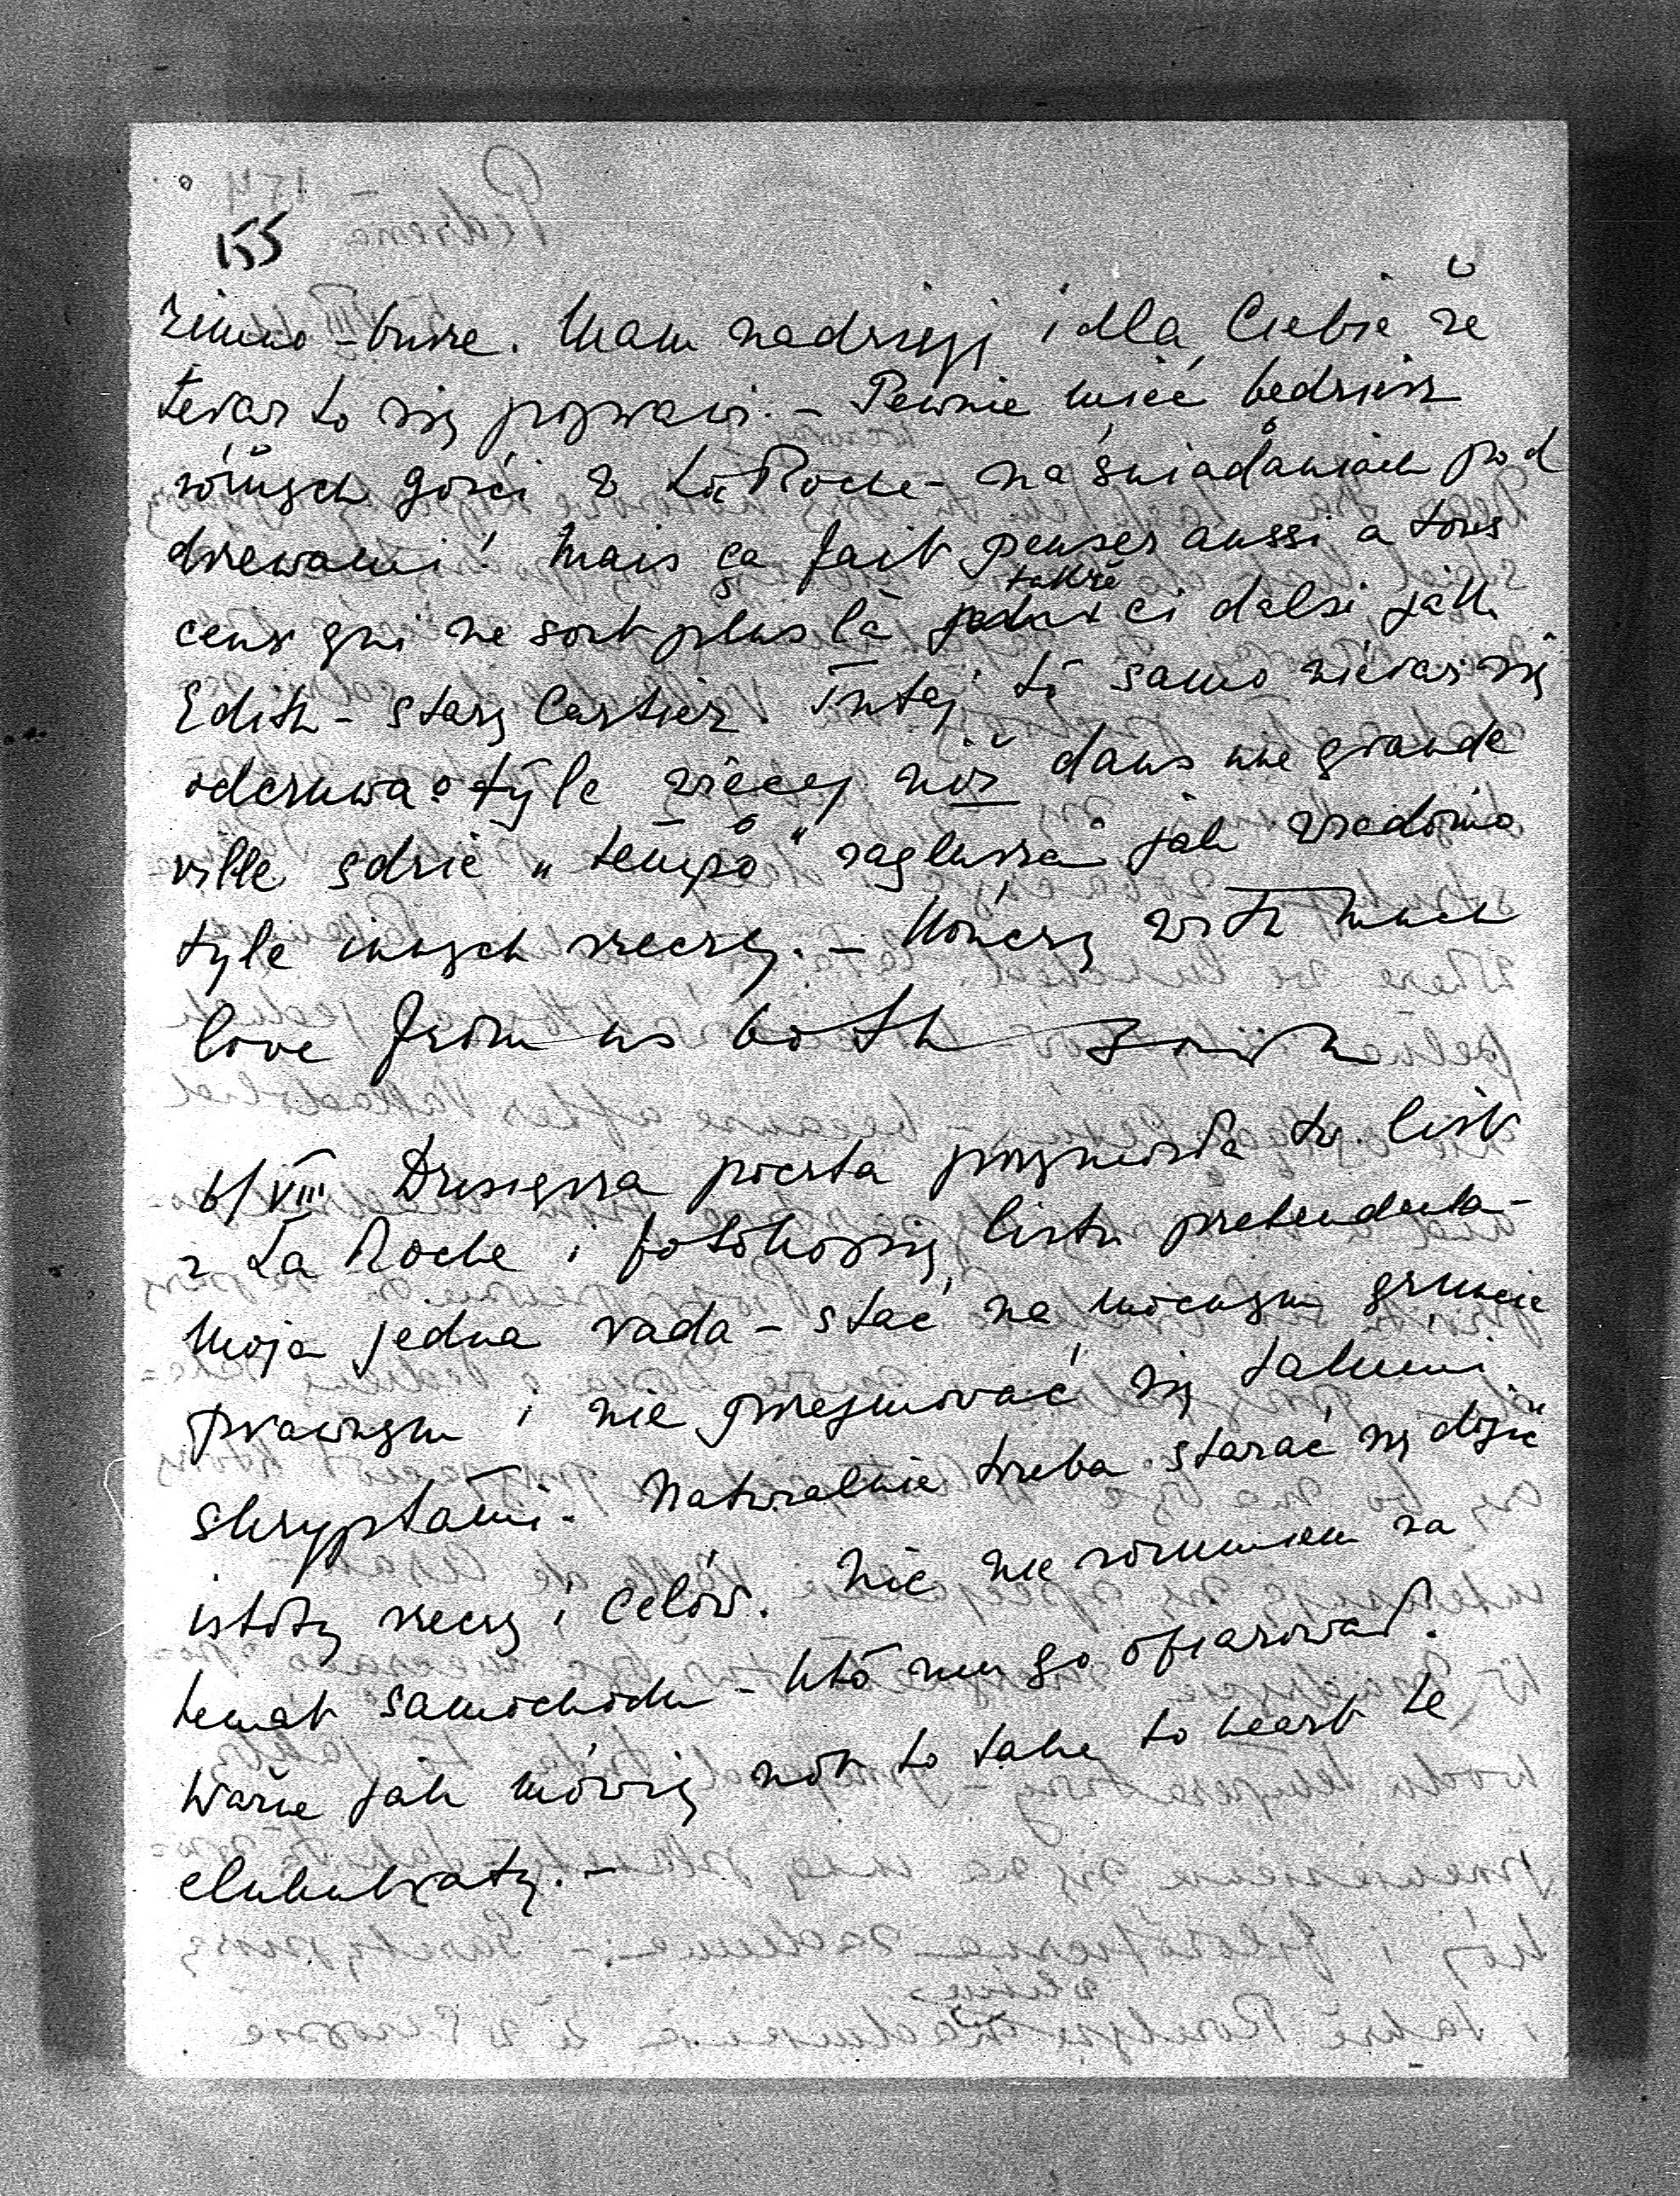 155
zimno - burze. Mam nadzieję i dla Ciebie że
teraz to się poprawi. - Pewnie mieć będziesz
różnych gości w La Roche - na śniadaniach pod
drzewami! Mais ça fait penser aussi a tous
ceux qui ne sont plus là także ci dalsi jak
Edith - stary Cartier. Tutaj to samo nieraz się
odczuwa o tyle więcej niż dans une grande
ville gdzie "tempo" zagłusza jak wiadomo
tyle innych rzeczy. - Kończę with much
love from us both
6/VIII Dzisiejsza poczta przyniosła tw. list
z La Roche i fotokopię listu pretendenta -
Moja jedna rada - stać na mocnym gruncie
prawnym i nie przejmować się takimi
skryptami. Naturalnie trzeba starać się dojść
istoty rzeczy i celów. Nic nie rozumiem za
temat samochodu - kto mu go ofiarował?
Ważne jak mówię not to take to heart te
elukubraty. -